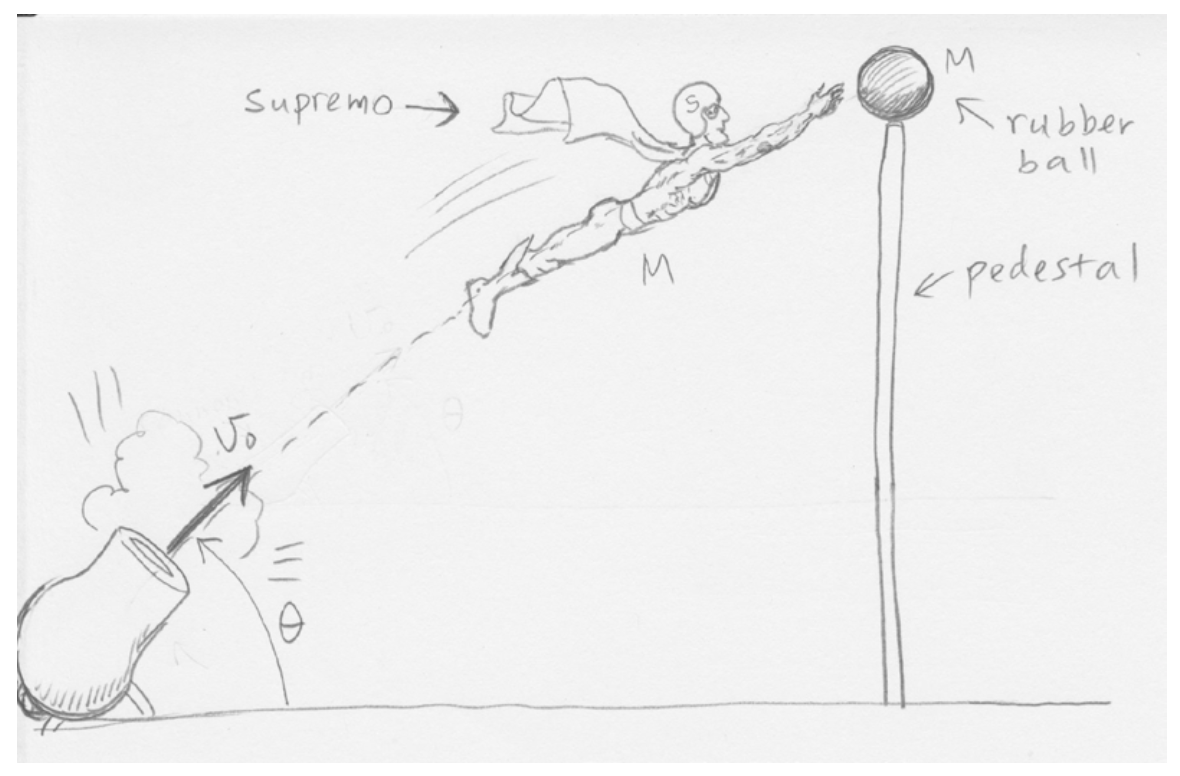 Supremo
S
M
rubber
ball
M
pedestal
v₀
θ